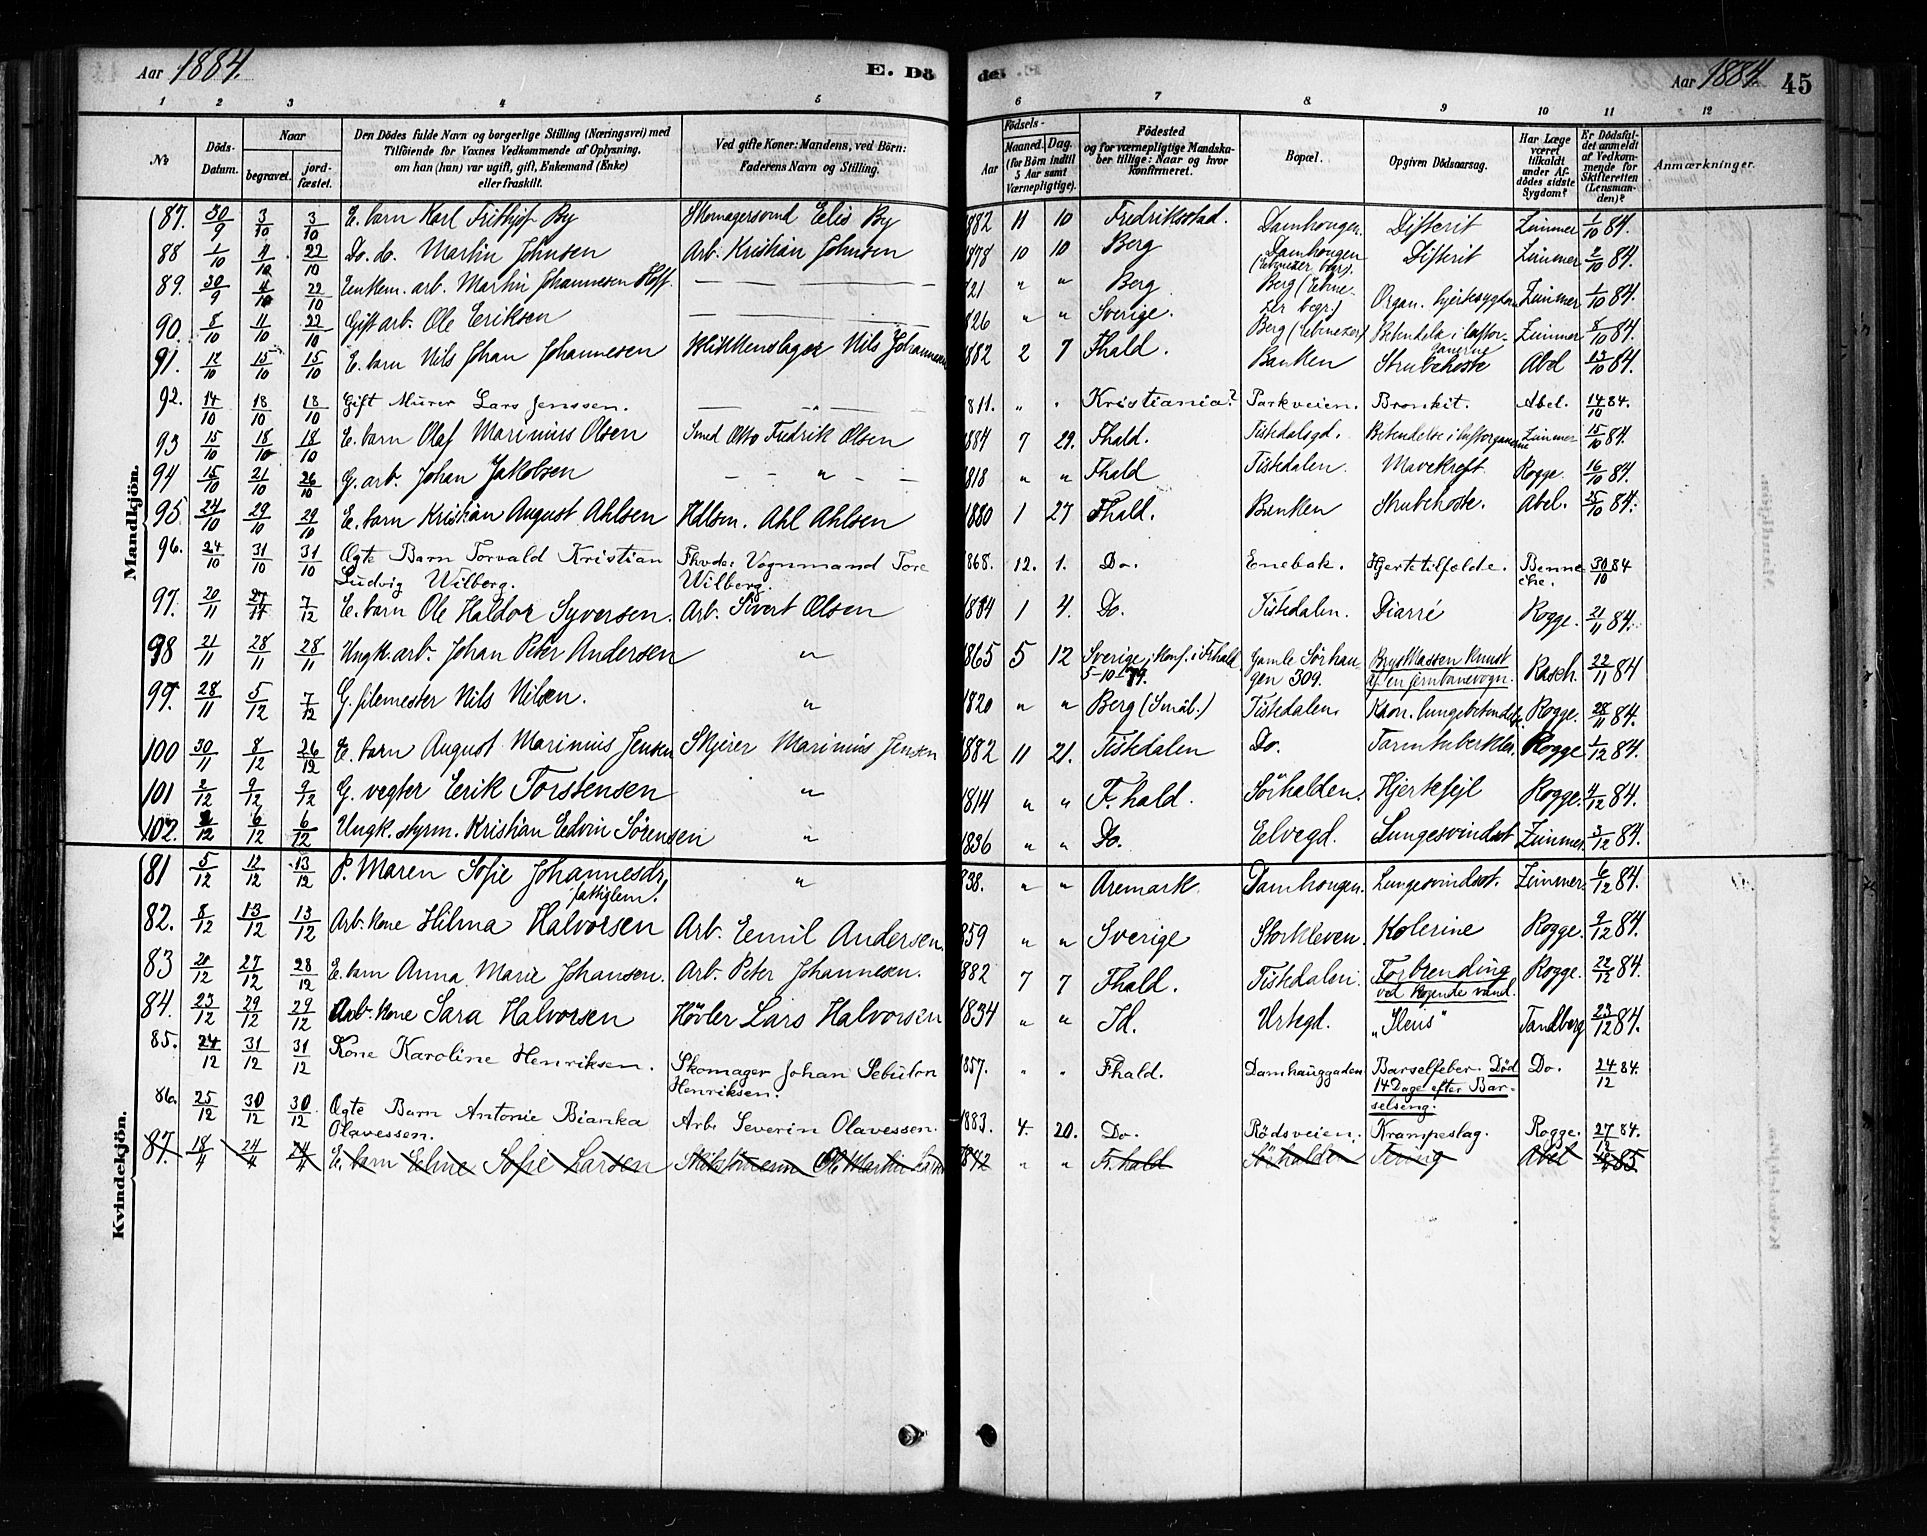 Aar 1884. E. Dö
1 2 3 4 5
No Döds-Datum. Naar begravet. jordfæstet. Den Dödes fulde Navn og borgerlige Stilling (Næringsvei) med Tilföiende for Voxnes Vedkommende af Oplysning, om han (hun) var ugift, gift, Enkemand (Enke) eller fraskilt. Ved gifte Koner: Mandens, ved Börn: Faderens Navn og Stilling.
de. Aar 1884. 45
6 7 8 9 10 11 12
Födsels- Aar Maaned. Dag. (for Börn indtil 5 Aar samt Værnepligtige). Födested og for værnepligtige Mandskaber tillige: Naar og hvor konfirmeret. Bopæl. Opgiven Dödsaarsag. Har Læge været tilkaldt under Afdödes sidste Sygdom? Er Dödsfaldet anmeldt af Vedkommende for Skifteretten (Lensmanden)? Anmærkninger.
Mandkjön.
87. 30/9 3/10 3/10 E. barn Karl Frithjof By Skomagersvend Elis By 1882 11 10 Fredriksstad. Damhougen. Difterit Zimmer 1/10 84.
88 1/10 4/10 22/10 Do. do. Martin Johnsen Arb. Kristian Johnsen 1878 10 10 Berg Damhougen (Ebenezer bgr.). Difterit Zimmer 2/10 84.
89. 30/9 4/10 22/10 Enkem. arb. Martin Johannesen Hoff. — 1821 " " Berg Berg (Ebenezer begr.) Organ. hjertesygdom Zimmer 1/10 84.
90. 8/10 11/10 22/10 Gift arb. Ole Eriksen — 1826 " " Sverige. Berg (Ebenezer) Betendelse i luftorganerne Zimmer 8/10 84.
91. 12/10 15/10 15/10 E. barn Nils Johan Johannesen Blikkenslager Nils Johannesen 1882 2 7 Fhald. Banken Strubehoste Abel 13/10 84.
92. 14/10 18/10 18/10 Gift Murer Lars Jenssen. — " — 1811. " " Kristiania? Parkveien. Bronkit. Abel. 14/10 84.
93 15/10 18/10 18/10 E. barn Olaf Marinius Olsen Smed Otto Fredrik Olsen 1884 7 29. Fhald. Tistedalsgd. Betendelse i luftorganerne Zimmer 15/10 84.
94 15/10 21/10 26/10 G. arb. Johan Jakobsen — " — 1818 " " Fhald Tistedalen. Mavekreft Rogge 16/10 84.
95. 24/10 29/10 29/10 E. barn Kristian August Ahlsen Hdlsm. Ahl Ahlsen 1880 1 27 Fhald. Banken Strubehoste. Abel. 25/10 84.
96. 24/10 31/10 31/10 Ogte Barn Torvald Kristian Ludvig Wilberg. Fhvdr: Vognmand Tore Wilberg. 1868. 12. 1. Do. Enebak. Hjertetilfelde. Benneche. 30/10 84
97. 20/11 27/11 7/12 E. barn Ole Haldor Syversen. Arb. Sivert Olsen 1884 1 4. Do. Tistedalen. Diarré Rogge. 21/11 84.
98 21/11 28/11 28/11 Ungk. arb. Johan Peter Andersen " 1865 5 12 Sverige, konf. i Fhald 5-10-79. Gamle Sörhaugen 309. Brystkassen knust af en jernbanevogn. Rasch. 22/11 84
99. 28/11 5/12 7/12 G. filemester Nils Nilsen. " 1820 " " Berg (Smål.) Tistedalen. Kron. lungebetendelse. Rogge. 28/11 84.
100 30/11 8/12 26/12 E. barn August Marinius Jensen Skjærer Marinius Jensen 1882 11 21. Tistedalen Do. Tarmtuberkler. Rogge 1/12 84.
101 2/12 9/12 9/12 G. vegter Erik Torstensen " 1814 " " F.hald. Sörhalden. Hjertefejl Rogge. 4/12 84.
102. 2/12 6/12 6/12 Ungk. styrm. Kristian Edvin Sörensen " 1836 " " Do. Elvegd. Lungesvindsot Zimmer. 3/12 84.
Kvindekjön.
81 5/12 12/12 13/12 P. Maren Sofie Johannesdr, fattiglem. " 838. " " Aremark. Damhougen. Lungesvindsot. Zimmer. 6/12 84.
82. 8/12 13/12 13/12 Arb. kone Hilma Halvorsen Arb. Emil Andersen. 859 " " Sverige Storkleven. Kolerine Rogge. 9/12 84.
83 20/12 27/12 28/12 E. barn Anna Marie Johansen. Arb. Peter Johannesen. 1882 7 7 Fhald. Tistedalen. Forbrending ved kogende vand. Rogge. 22/12 84.
84. 23/12 29/12 29/12 Arb. kone Sara Halvorsen Hövler Lars Halvorsen 1834 " " Id. Urtegd. „Ileus" Tandberg 23/12 84.
85. 24/12 31/12 31/12 Kone Karoline Henriksen. Skomager Johan Sebulon Henriksen. 1857. " " Fhald. Damhauggaden Barselfeber. Död 14 Dage efter Barselseng. Do. 24/12 84.
86. 25/12 30/12 30/12 Ogte Barn Antonie Bianka Olavessen. Arb. Severin Olavessen. 1883. 4. 20. Do. Rödsveien. Krampeslag. Rogge. 27/12 84.
87. 18/4 24/4 24/4 E. barn Eline Sofie Larsen Ole Martin Larsen " " F.hald Sörhalden Tering Abel 85